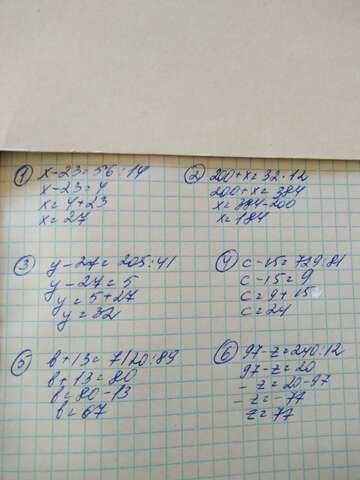 1 x-23=56:14
x-23=4
x=4+23
x=27
2 200+x=32·12
200+x=384
x=384-200
x=184
3 y-27=205:41
y-27=5
y=5+27
y=32
4 c-15=729:81
c-15=9
c=9+15
c=24
5 b+13=7120:89
b+13=80
b=80-13
b=67
6 97-z=240:12
97-z=20
-z=20-97
-z=-77
z=77